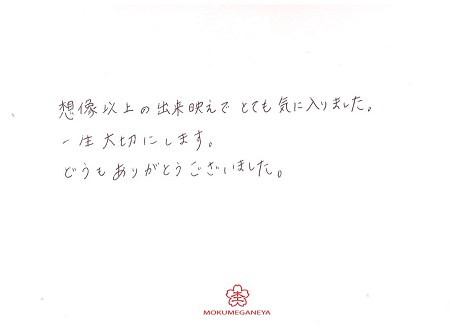 想像以上の出来映えでとても気に入りました。
一生大切にします。
どうもありがとうございました。
MOKUMEGANEYA